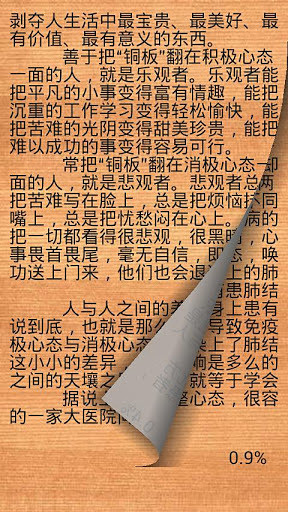 剥夺人生活中最宝贵、最美好、最
有价值、最有意义的东西。
善于把“铜板”翻在积极心态
一面的人，就是乐观者。乐观者能
把平凡的小事变得富有情趣，能把
沉重的工作学习变得轻松愉快，能
把苦难的光阴变得甜美珍贵，能把
难以成功的事变得容易可行。
常把“铜板”翻在消极心态
面的人，就是悲观者。悲观者总
把苦难写在脸上，总是把烦恼
嘴上，总是把忧愁闷在心上。 病的
把一切都看得很悲观，很黑 ，心
事畏首畏尾，毫无自信， 态，唤
功送上门来，他们也会退 上的肺
患肺结
人与人之间的差 身上患有
说到底，也就是那么 导致免疫
极心态与消极心态 染上了肺结
这小小的差异 响是多么的
之间的天壤之 就等于学会
据说 整心态，很容
的一家大医院
0.9%